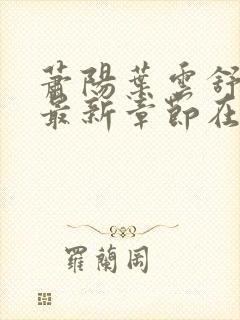 蕭陽葉雲舒
最新章節在
羅蘭岡